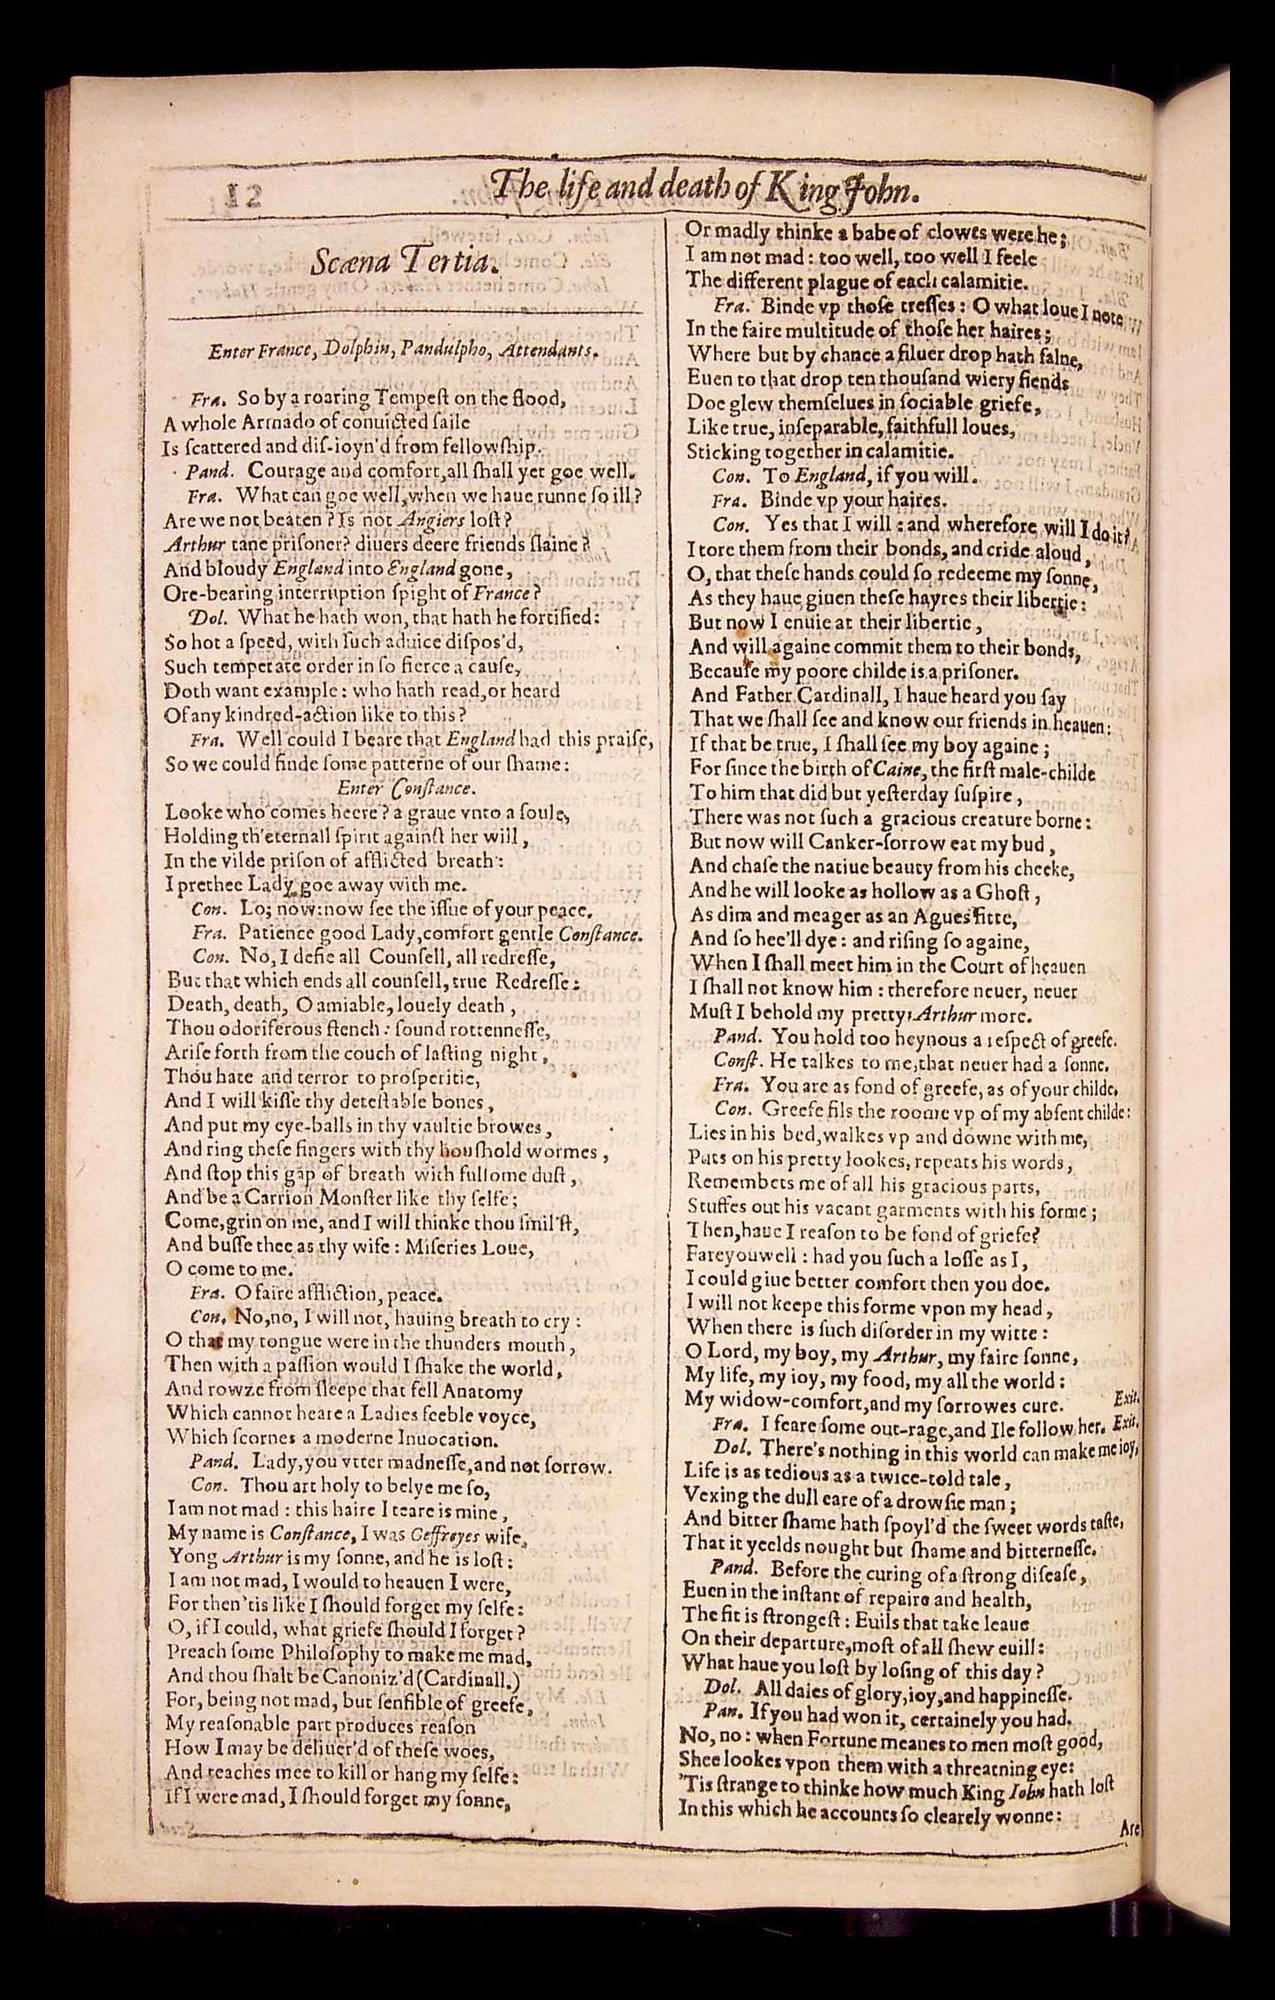 12
The life and death of King John.
Scæna Tertia.
Enter France, Dolphin, Pandulpho, Attendants.
Fra. So by a roaring Tempeſt on the flood,
A whole Armado of conuicted ſaile
Is ſcattered and diſ-ioyn'd from fellowſhip.
Pand. Courage and comfort,all ſhall yet goe well.
Fra. What can goe well,when we haue runne ſo ill?
Are we not beaten? Is not Angiers loſt?
Arthur tane priſoner? diuers deere friends ſlaine?
And bloudy England into England gone,
Ore-bearing interruption ſpight of France?
Dol. What he hath won, that hath he fortified:
So hot a ſpeed, with ſuch aduice diſpos'd,
Such temperate order in ſo fierce a cauſe,
Doth want example: who hath read,or heard
Of any kindred-action like to this?
Fra. Well could I beare that England had this praiſe,
So we could finde ſome patterne of our ſhame:
Enter Conſtance.
Looke who comes heere? a graue vnto a ſoule,
Holding th'eternall ſpirit againſt her will,
In the vilde priſon of afflicted breath:
I prethee Lady goe away with me.
Con. Lo; now:now ſee the iſſue of your peace.
Fra. Patience good Lady,comfort gentle Conſtance.
Con. No, I defie all Counſell, all redreſſe,
But that which ends all counſell,true Redreſſe:
Death, death, O amiable, louely death,
Thou odoriferous ſtench: ſound rottenneſſe,
Ariſe forth from the couch of laſting night,
Thou hate and terror to proſperitie,
And I will kiſſe thy deteſtable bones,
And put my eye-balls in thy vaultie browes,
And ring theſe fingers with thy houſhold wormes,
And ſtop this gap of breath with fulſome duſt,
And be a Carrion Monſter like thy ſelfe;
Come,grin on me, and I will thinke thou ſmil'ſt,
And buſſe thee as thy wife: Miſeries Loue,
O come to me.
Fra. O faire affliction, peace.
Con. No,no, I will not, hauing breath to cry:
O that my tongue were in the thunders mouth,
Then with a paſſion would I ſhake the world,
And rowze from ſleepe that fell Anatomy
Which cannot heare a Ladies feeble voyce,
Which ſcornes a moderne Inuocation.
Pand. Lady,you vtter madneſſe,and not ſorrow.
Con. Thou art holy to belye me ſo,
I am not mad: this haire I teare is mine,
My name is Conſtance, I was Geffreyes wife,
Yong Arthur is my ſonne, and he is loſt:
I am not mad, I would to heauen I were,
For then'tis like I ſhould forget my ſelfe:
O, if I could, what griefe ſhould I forget?
Preach ſome Philoſophy to make me mad,
And thou ſhalt be Canoniz'd(Cardinall.)
For, being not mad, but ſenſible of greefe,
My reaſonable part produces reaſon
How I may be deliuer'd of theſe woes,
And teaches mee to kill or hang my ſelfe:
If I were mad, I ſhould forget my ſonne,
Or madly thinke a babe of clowts were he;
I am not mad: too well, too well I feele
The different plague of each calamitie.
Fra. Binde vp thoſe treſſes: O what loue I note
In the faire multitude of thoſe her haires;
Where but by chance a ſiluer drop hath falne,
Euen to that drop ten thouſand wiery fiends
Doe glew themſelues in ſociable griefe,
Like true, inſeparable, faithfull loues,
Sticking together in calamitie.
Con. To England, if you will.
Fra. Binde vp your haires.
Con. Yes that I will: and wherefore will I do it?
I tore them from their bonds, and cride aloud,
O, that theſe hands could ſo redeeme my ſonne,
As they haue giuen theſe hayres their libertie:
But now I enuie at their libertie,
And will againe commit them to their bonds,
Becauſe my poore childe is a priſoner.
And Father Cardinall, I haue heard you ſay
That we ſhall ſee and know our friends in heauen:
If that be true, I ſhall ſee my boy againe;
For ſince the birth of Caine, the firſt male-childe
To him that did but yeſterday ſuſpire,
There was not ſuch a gracious creature borne:
But now will Canker-ſorrow eat my bud,
And chaſe the natiue beauty from his cheeke,
And he will looke as hollow as a Ghoſt,
As dim and meager as an Agues fitte,
And ſo hee'll dye: and riſing ſo againe,
When I ſhall meet him in the Court of heauen
I ſhall not know him: therefore neuer, neuer
Muſt I behold my pretty Arthur more.
Pand. You hold too heynous a reſpect of greefe.
Conſt. He talkes to me,that neuer had a ſonne.
Fra. You are as fond of greefe, as of your childe.
Con. Greefe fils the roome vp of my abſent childe:
Lies in his bed,walkes vp and downe with me,
Puts on his pretty lookes, repeats his words,
Remembers me of all his gracious parts,
Stuffes out his vacant garments with his forme;
Then,haue I reaſon to be fond of griefe?
Fareyouwell: had you ſuch a loſſe as I,
I could giue better comfort then you doe.
I will not keepe this forme vpon my head,
When there is ſuch diſorder in my witte:
O Lord, my boy, my Arthur, my faire ſonne,
My life, my ioy, my food, my all the world:
My widow-comfort,and my ſorrowes cure. Exit.
Fra. I feare ſome out-rage,and Ile follow her. Exit.
Dol. There's nothing in this world can make me ioy,
Life is as tedious as a twice-told tale,
Vexing the dull eare of a drowſie man;
And bitter ſhame hath ſpoyl'd the ſweet words taſte,
That it yeelds nought but ſhame and bitterneſſe.
Pand. Before the curing of a ſtrong diſeaſe,
Euen in the inſtant of repaire and health,
The fit is ſtrongeſt: Euils that take leaue
On their departure,moſt of all ſhew euill:
What haue you loſt by loſing of this day?
Dol. All daies of glory,ioy,and happineſſe.
Pan. If you had won it, certainely you had.
No, no: when Fortune meanes to men moſt good,
Shee lookes vpon them with a threatning eye:
'Tis ſtrange to thinke how much King Iohn hath loſt
In this which he accounts ſo clearely wonne:
Are